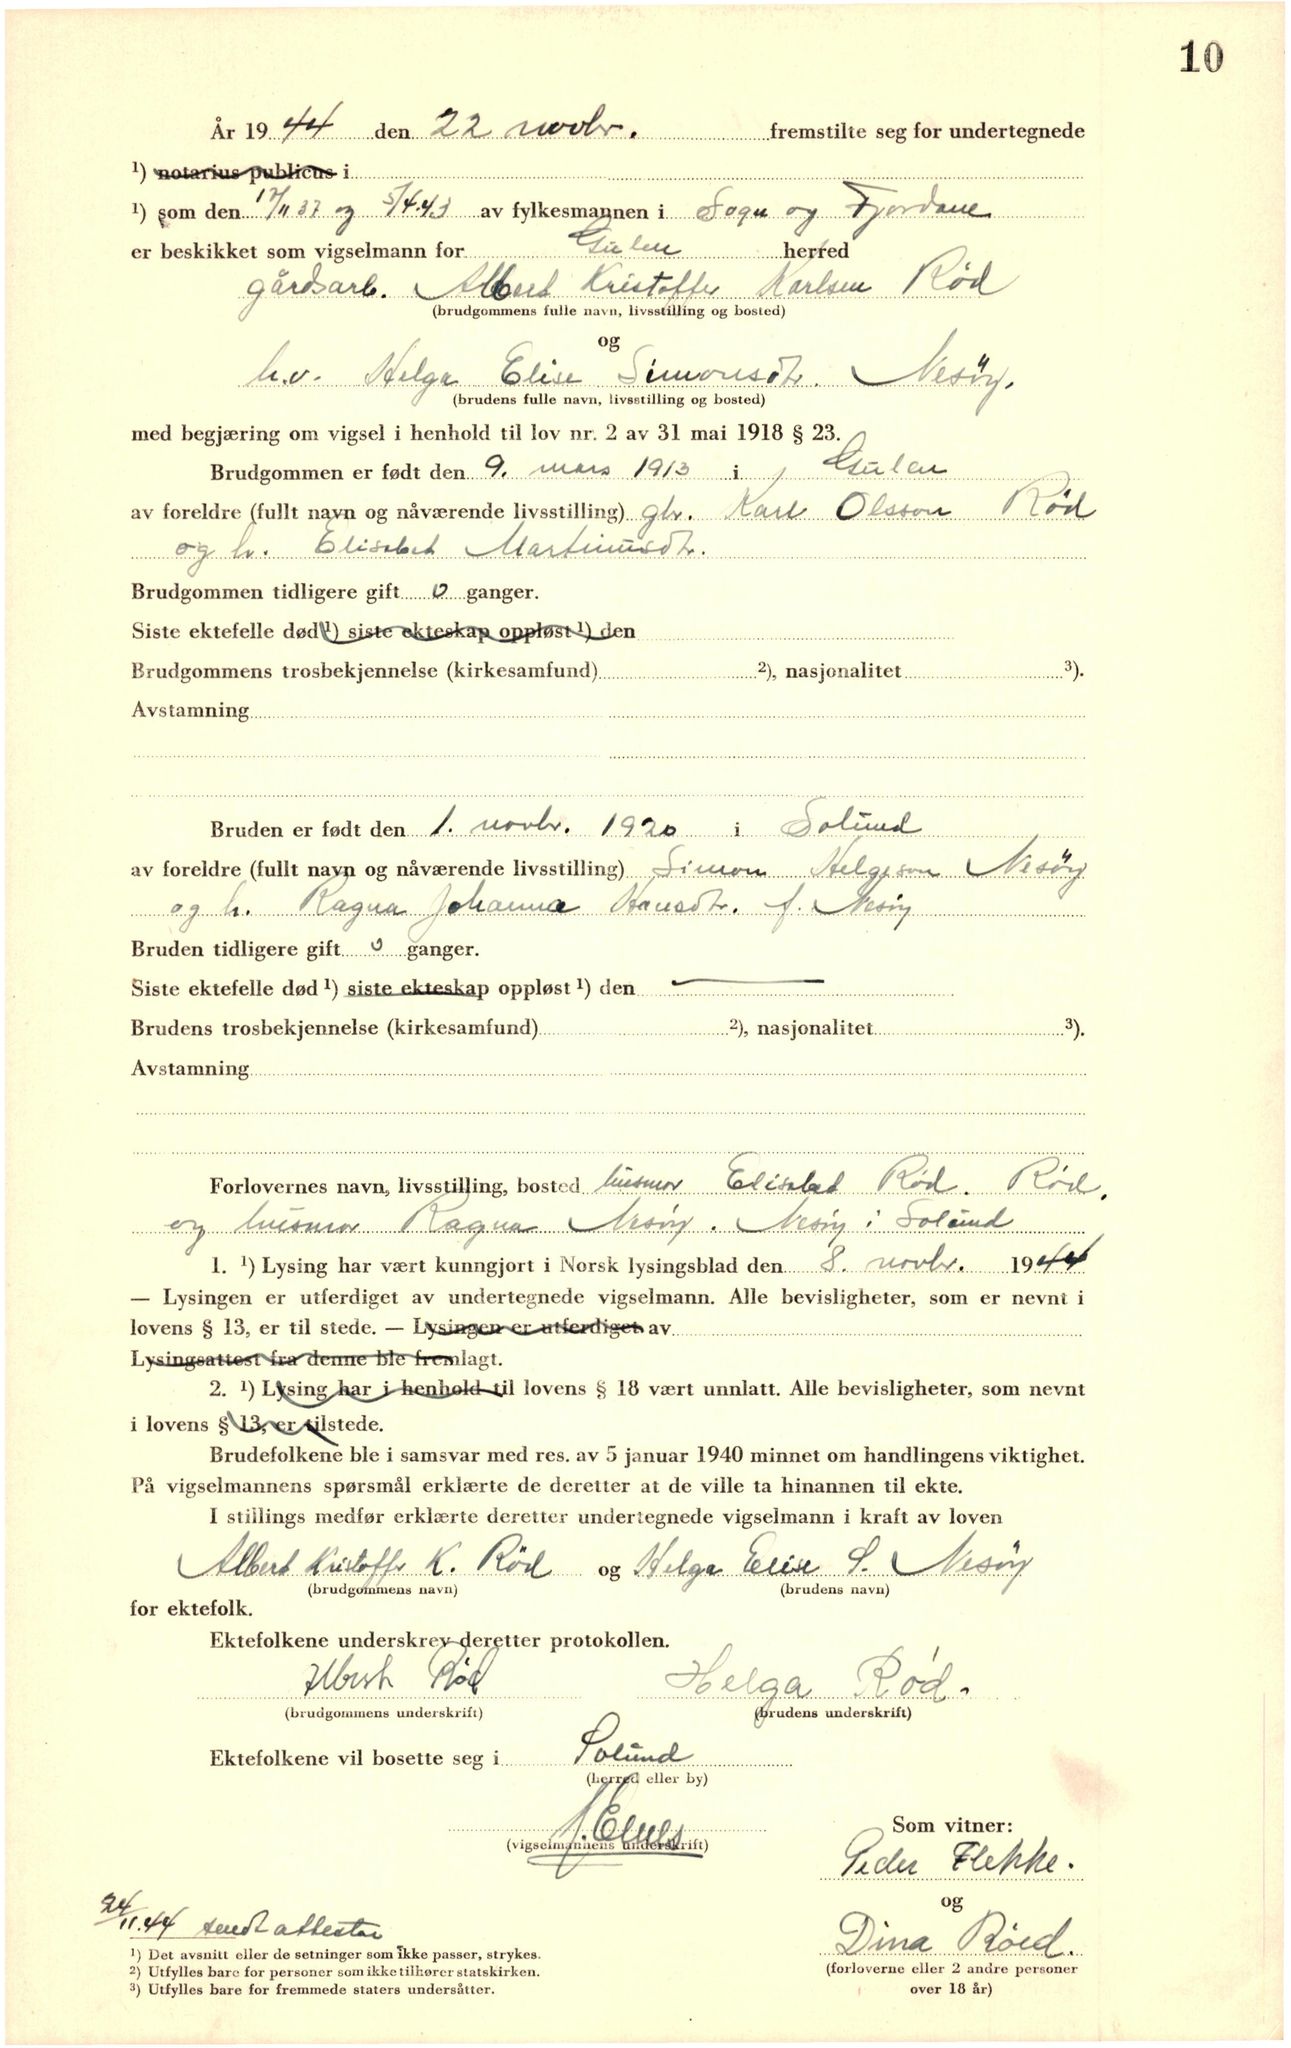 10
År 1944 den 22 novbr. fremstilte seg for undertegnede
¹) notarius publicus i
¹) som den 17/11 37 og 5/4.43 av fylkesmannen i Sogn og Fjordane
er beskikket som vigselmann for Gulen herred
gårdsarb. Albert Kristoffer Karlsen Rød
(brudgommens fulle navn, livsstilling og bosted)
og
h.v. Helga Elise Simonsdtr. Nesöy.
(brudens fulle navn, livsstilling og bosted)
med begjæring om vigsel i henhold til lov nr. 2 av 31 mai 1918 § 23.
Brudgommen er født den 9. mars 1913 i Gulen
av foreldre (fullt navn og nåværende livsstilling) gbr. Karl Olsson Rød
og h. Elisabet Martinusdtr.
Brudgommen tidligere gift 0 ganger.
Siste ektefelle død¹) siste ekteskap oppløst¹) den
Brudgommens trosbekjennelse (kirkesamfund) ²), nasjonalitet ³).
Avstamning
Bruden er født den 1. novbr. 1920 i Solund
av foreldre (fullt navn og nåværende livsstilling) Simon Helgeson Nesöy
og h. Ragna Johanna Hansdtr. f. Nesöy
Bruden tidligere gift 0 ganger.
Siste ektefelle død¹) siste ekteskap oppløst¹) den
Brudens trosbekjennelse (kirkesamfund) ²), nasjonalitet ³).
Avstamning
Forlovernes navn, livsstilling, bosted husmor Elisabet Rød. Rød.
og husmor Ragna Nesöy. Nesöy i Solund
1. ¹) Lysing har vært kunngjort i Norsk lysingsblad den 8. novbr. 1944
— Lysingen er utferdiget av undertegnede vigselmann. Alle bevisligheter, som er nevnt i
lovens § 13, er til stede. — Lysingen er utferdiget av
Lysingsattest fra denne ble fremlagt.
2. ¹) Lysing har i henhold til lovens § 18 vært unnlatt. Alle bevisligheter, som nevnt
i lovens § 13, er tilstede.
Brudefolkene ble i samsvar med res. av 5 januar 1940 minnet om handlingens viktighet.
På vigselmannens spørsmål erklærte de deretter at de ville ta hinannen til ekte.
I stillings medfør erklærte deretter undertegnede vigselmann i kraft av loven
Albert Kristoffer K. Rød og Helga Elise S. Nesöy
(brudgommens navn) (brudens navn)
for ektefolk.
Ektefolkene underskrev deretter protokollen.
Albert Rød Helga Rød.
(brudgommens underskrift) (brudens underskrift)
Ektefolkene vil bosette seg i Solund
(herred eller by)
(vigselmannens underskrift)
Som vitner:
Peder Flekke.
og
Dina Röed.
(forloverne eller 2 andre personer
over 18 år)
24/11.44 sendt attester
¹) Det avsnitt eller de setninger som ikke passer, strykes.
²) Utfylles bare for personer som ikke tilhører statskirken.
³) Utfylles bare for fremmede staters undersåtter.